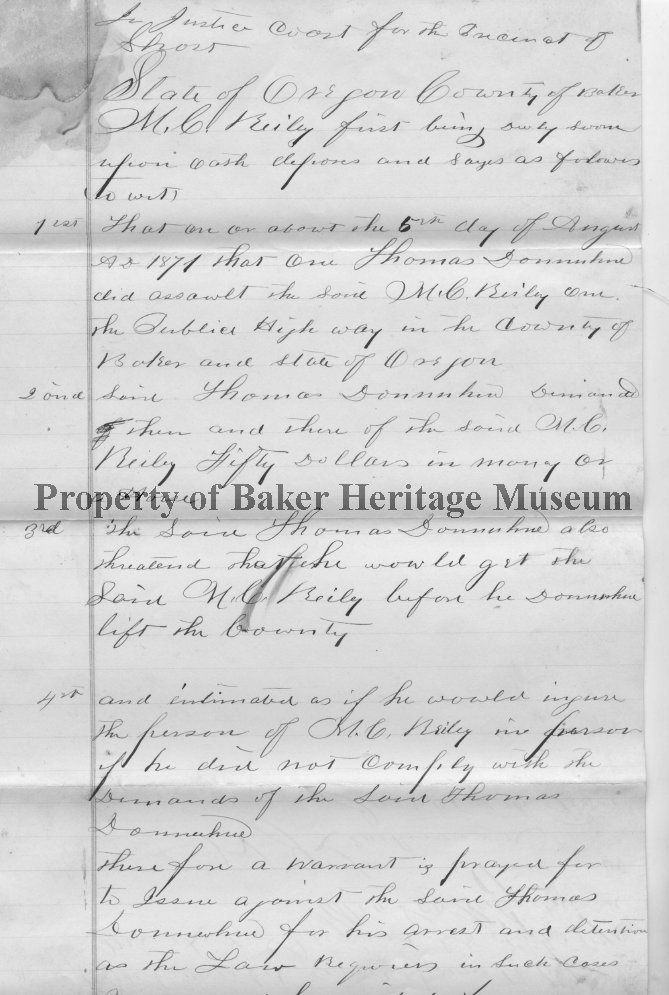 In Justice Coart for the Precinct of
State of Oregon County of Baker
M.C. Reily first being duly sworn
upon oath deposes and sayes as follows
to wit)
1st That on or abowt the 5th day of August
AD 1871 that one Thomas Donnuhue
did assawlt the said M.C. Reily one
the Publick High way in the County of
Baker and state of Oregon
2ond Said Thomas Donnuhue Demand
then and there of the said M.C.
Reily Fifty Dollars in money or
Property of Baker Heritage Museum
3rd The Said Thomas Donnuhue also
threatend that he would get the
Said M.C. Reily before he Donnuhue
lift the Cownty
4th and intimated as if he would injure
the person of M.C. Reily in person
if he did not Comply with the
Demands of the Said Thomas
Donnuhue
there fore a warrant is prayed for
to Issue against the Said Thomas
Donnuhue for his arrest and detention
as the Law Requiers in Such Cases